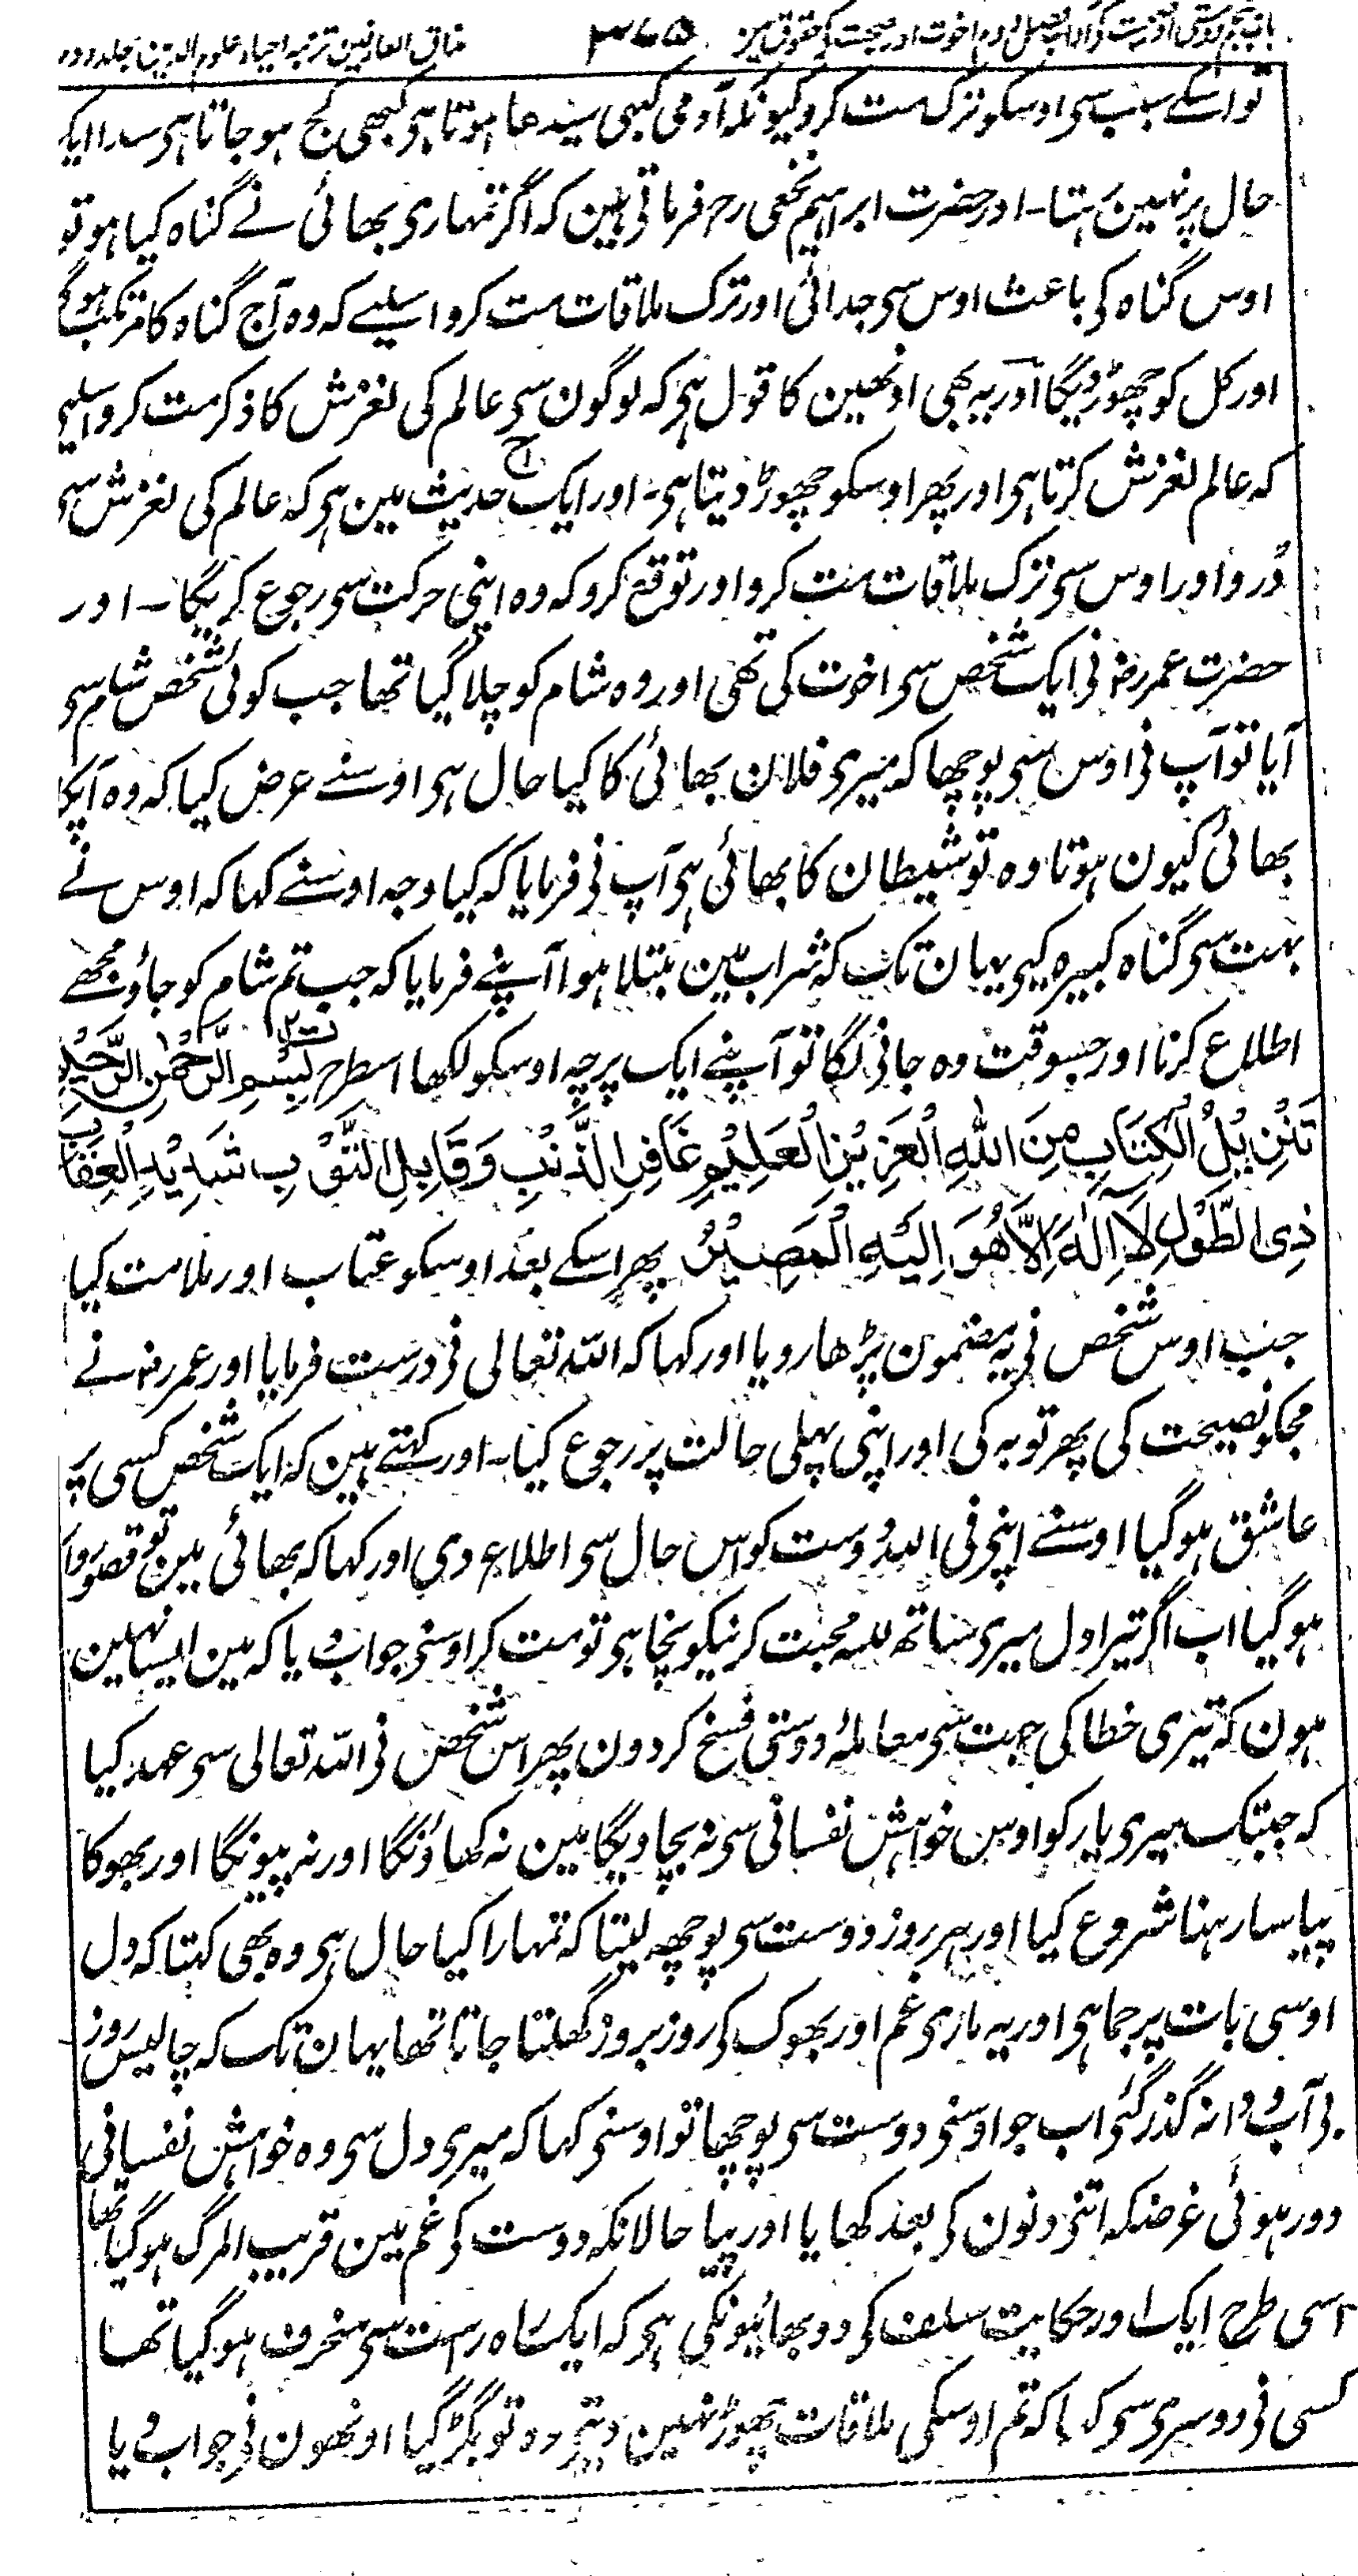 باب پنجم دوستی اور محبت کے آداب فصل دوم اخوت اور صحبت کے حقوق مین ۳۷۵ مذاق العارفین ترجمہ احیاء علوم الدین جلد دوم
تو اسکے سبب سے اوسکو ترک مت کرو کیونکہ آدمی کبھی سیدھا ہوتا ہے کبھی کج ہو جاتا ہے سدا ایک
حال پر نہین رہتا۔ اور حضرت ابراہیم نخعی رح فرماتے ہین کہ اگر تمہارے بھائی نے گناہ کیا ہو تو
اوس گناہ کے باعث اوس سے جدائی اور ترک ملاقات مت کرو اسلیے کہ وہ آج گناہ کا مرتکب ہو گا
اور کل کو چھوڑ دیگا اور یہ بھی اونھین کا قول ہے کہ لوگون سے عالم کی لغزش کا ذکر مت کرو اسلیے
کہ عالم لغزش کرتا ہے اور پھر اوسکو چھوڑ دیتا ہے۔ اور ایک حدیث مین ہے کہ عالم کی لغزش سے
ڈرو اور اوس سے ترک ملاقات مت کرو اور توقع کرو کہ وہ اپنی حرکت سے رجوع کریگا۔ اور
حضرت عمر رضہ نے ایک شخص سے اخوت کی تھی اور وہ شام کو چلا گیا تھا جب کوئی شخص شام سے
آیا تو آپ نے اوس سے پوچھا کہ میرے فلان بھائی کا کیا حال ہے اوسنے عرض کیا کہ وہ آپکا
بھائی کیون ہوتا وہ تو شیطان کا بھائی ہے آپ نے فرمایا کہ کیا وجہ اوسنے کہا کہ اوس نے
بہت سے گناہ کبیرہ کیے یہان تک کہ شراب مین مبتلا ہوا آپنے فرمایا کہ جب تم شام کو جاؤ مجھے
اطلاع کرنا اور جسوقت وہ جانے لگا تو آپنے ایک پرچہ اوسکو لکھا اسطرح بِسْمِ الرَّحْمٰنِ الرَّحِيْمِ
تَنْزِيْلُ الْكِتَابِ مِنَ اللّٰهِ الْعَزِيْزِ الْعَلِيْمِ غَافِرِ الذَّنْبِ وَقَابِلِ التَّوْبِ شَدِيْدِ الْعِقَابِ
ذِى الطَّوْلِ لَا اِلٰهَ اِلَّا هُوَ اِلَيْهِ الْمَصِيْرُ پھر اسکے بعد اوسکو عتاب اور ملامت کیا
جب اوس شخص نے یہ مضمون پڑھا رویا اور کہا کہ اللہ تعالی نے درست فرمایا اور عمر رضہ نے
مجکو نصیحت کی پھر توبہ کی اور اپنی پہلی حالت پر رجوع کیا۔ اور کہتے ہین کہ ایک شخص کسی پر
عاشق ہو گیا اوسنے اپنے فی اللہ دوست کو اس حال سے اطلاع دی اور کہا کہ بھائی مین تو قصوروار
ہو گیا اب اگر تیرا دل میرے ساتھ للہ محبت کرنیکو نچاہے تو مت کر اوسنے جواب دیا کہ مین ایسا نہین
ہون کہ تیری خطا کی جہت سے معاملۂ دوستی فسخ کر دون پھر اس شخص نے اللہ تعالی سے عہد کیا
کہ جبتک میرے یار کو اوس خواہش نفسانی سے نہ بچاویگا مین نہ کھاؤنگا اور نہ پیونگا اور بھوکا
پیاسا رہنا شروع کیا اور ہر روز دوست سے پوچھ لیتا کہ تمہارا کیا حال ہے وہ بھی کہتا کہ دل
اوسی بات پر جما ہے اور یہ مارے غم اور بھوک کے روز بروز گھلتا جاتا تھا یہان تک کہ چالیس روز
بے آب و دانہ گذر گئے اب جو اوسنے دوست سے پوچھا تو اوسنے کہا کہ میرے دل سے وہ خواہش نفسانی
دور ہوئی غرضکہ اتنے دنون کے بعد کھایا اور پیا حالانکہ دوست کے غم مین قریب المرگ ہو گیا تھا
اسی طرح ایک اور حکایت سلف کے دو بھائیونکی ہے کہ ایک راہ راست سے منحرف ہو گیا تھا
کسی نے دوسرے سے کہا کہ تم اوسکی ملاقات چھوڑ نہین دیتے وہ تو بگڑ گیا اونھون نے جواب دیا